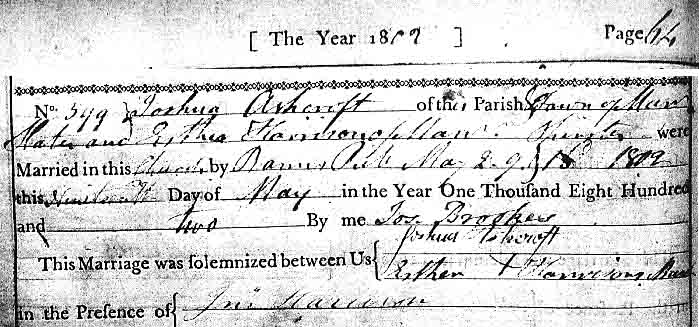 [ The Year 1802 ] Page 64
No. 399 } Joshua Ashcroft of this Parish Town of
and Esther Harrison of Spinster were
Married in this Church by Banns Pub May 2. 9. } 16 1802
this Nineteenth Day of May in the Year One Thousand Eight Hundred
and two By me Jos. Brookes
Joshua Ashcroft
This Marriage was solemnized between Us {
Esther + Harrison
in the Presence of {